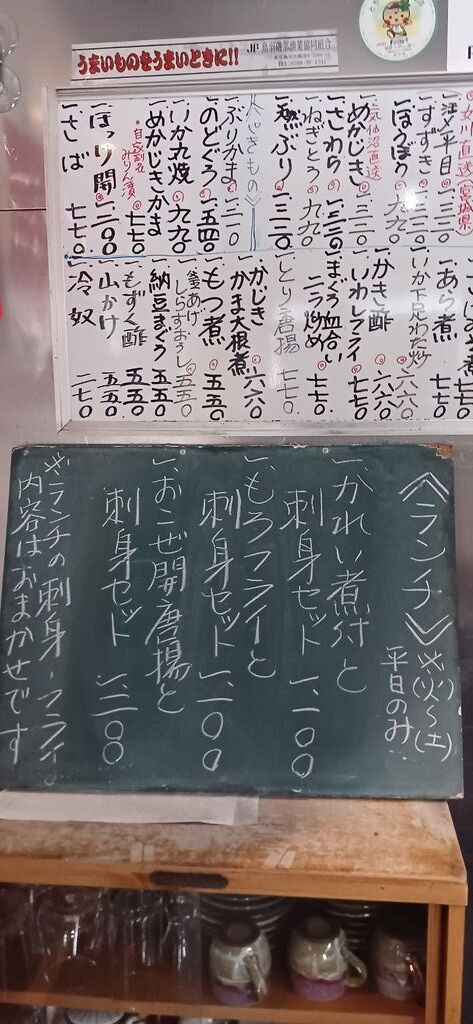 うまいものをうまいときに!!
JF鳥羽磯部漁業協同組合
女川直送 宮城県
平目 一三二〇
すずき 一三二〇
ほうぼう 九九〇
気仙沼直送
めかじき 一三二〇
さわら 一三二〇
ねぎとろ 九九〇
天然ぶり 一三二〇
ぶりかま
のどぐろ 一五四〇
いか丸焼 九九〇
めかじきかま 七七〇
自家製 みりん漬
ほっけ開 一一〇〇
さば 七七〇
あら煮 七七〇
いか下足わた炒 六六〇
かき酢 六六〇
いわしフライ 七七〇
まぐろ血合い
ニラ炒め 七七〇
とり唐揚 七七〇
かじき
かま大根煮 六六〇
もつ煮 五五〇
釜あげ
しらすおろし 五五〇
納豆まぐろ 五五〇
もずく酢 五五〇
山かけ 五五〇
冷奴 二七〇
《ランチ》※(火)〜(土)
平日のみ
一、かれい煮付と
刺身セット 一、一〇〇
一、もろフライと
刺身セット 一、一〇〇
一、おこぜ開唐揚と
刺身セット 一、二〇〇
※ランチの刺身・フライ
内容はおまかせです